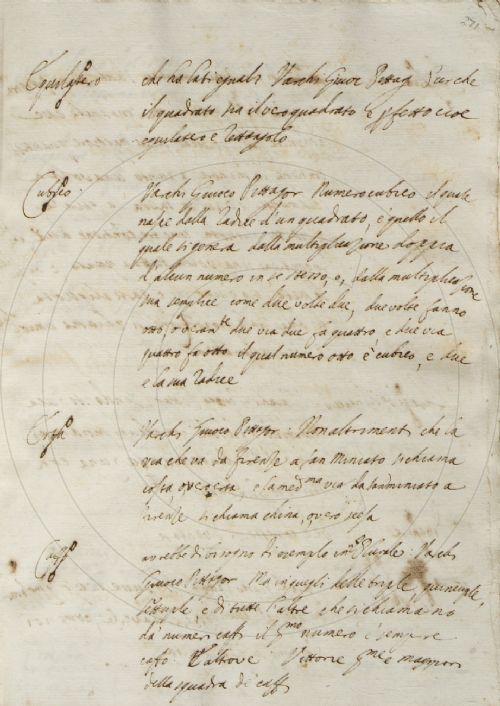 271
Equilatero che ha lati eguali Varchi Giuoc Pittag Purche
il quadrato sia il vero quadrato e pfetto cioe
equilatero e rettagolo
Cubico. Varchi Giuoco Pittagor Numero cubico il quale
nasce dalla radice d'un quadrato, e quello il
quale si genera dalla multiplicazione doppia
d'alcun numero in se stesso, o, dalla multiplicazione
sua semplice come due volte due, due volte fanno
otto, o due via due fa quattro e due via
quattro fa otto il qual numero otto è cubico, e due
e la sua radice
Erta Varchi Giuoco Pittagor: Non altrimenti che la
via che va da Firenze a San Miniato si chiama
costa, overo erta e la med.ma via da Sanminiato a
Firenze si chiama china, overo scesa
Caffo avrebbe di bisogno di esemplo Varchi
Giuoco Pittagor Ma in quegli delle triple, quincuple,
settuple e di tutte l'altre che si chiamano
da numeri caffi il pmo numero è sempre
caffo L'altrove Vittorie e maggiori
della squadra di caffi